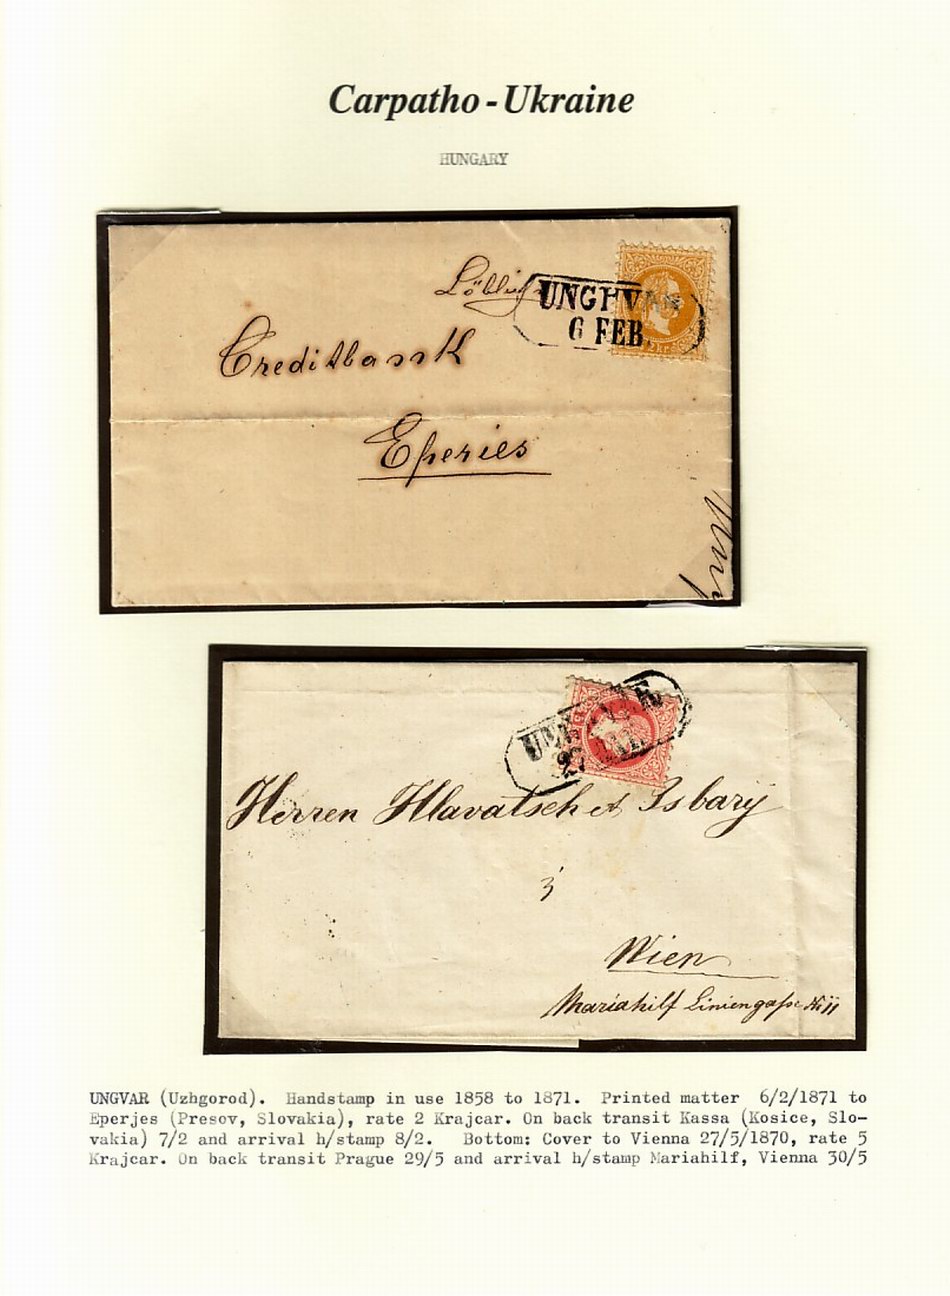 Carpatho-Ukraine
HUNGARY
Löbliche
UNGHVAR
6 FEB.
Creditbank
Eperies
Herren Hlavatsch et Isbary
3
Wien
Mariahilf Liniengasse № 11
UNGVAR (Uzhgorod). Handstamp in use 1858 to 1871. Printed matter 6/2/1871 to
Eperjes (Presov, Slovakia), rate 2 Krajcar. On back transit Kassa (Kosice, Slo-
vakia) 7/2 and arrival h/stamp 8/2. Bottom: Cover to Vienna 27/5/1870, rate 5
Krajcar. On back transit Prague 29/5 and arrival h/stamp Mariahilf, Vienna 30/5